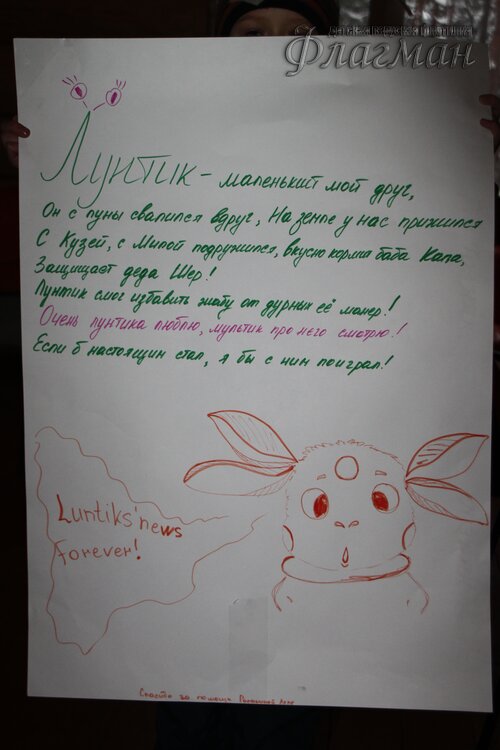 Флагман
Лунтик - маленький мой друг,
Он с луны свалился вдруг, На земле у нас прижился
С Кузей, с Милой подружился, вкусно кормит баба Капа,
Защищает деда Шер!
Лунтик смог избавить жабу от дурных её манер!
Очень лунтика люблю, мультик про него смотрю!
Если б настоящим стал, я бы с ним поиграл!
Luntiks'news
forever!
Спасибо за помощь